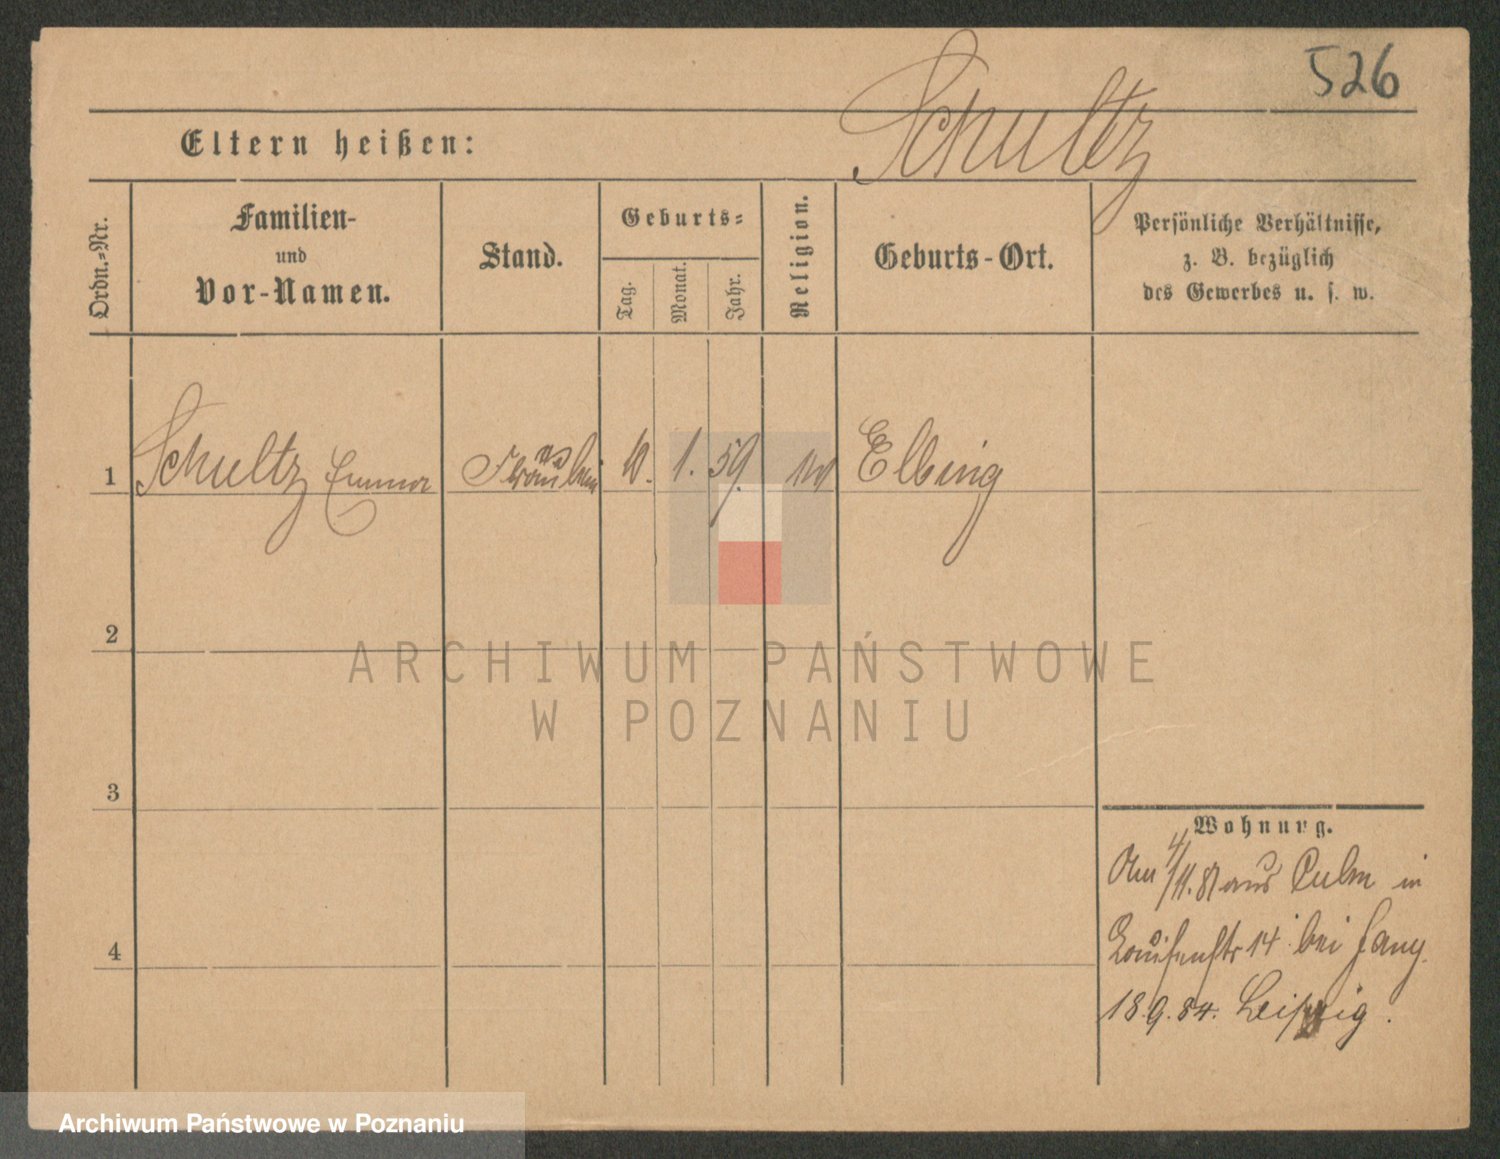 526
Schultz
Eltern heißen:
Ordn.-Nr.
Familien-
und
Vor-Namen.
Stand.
Geburts-
Tag.
Monat.
Jahr.
Religion.
Geburts-Ort.
Persönliche Verhältnisse,
z. B. bezüglich
des Gewerbes u. s. w.
1 Schultz Emma Fräulein 10. 1. 59. Elbing
2
ARCHIWUM PAŃSTWOWE
W POZNANIU
3
4
Wohnung.
Am 4/11. 81 aus Culm in
Louisenstr 14 bei
18.9.84. Leipzig.
Archiwum Państwowe w Poznaniu